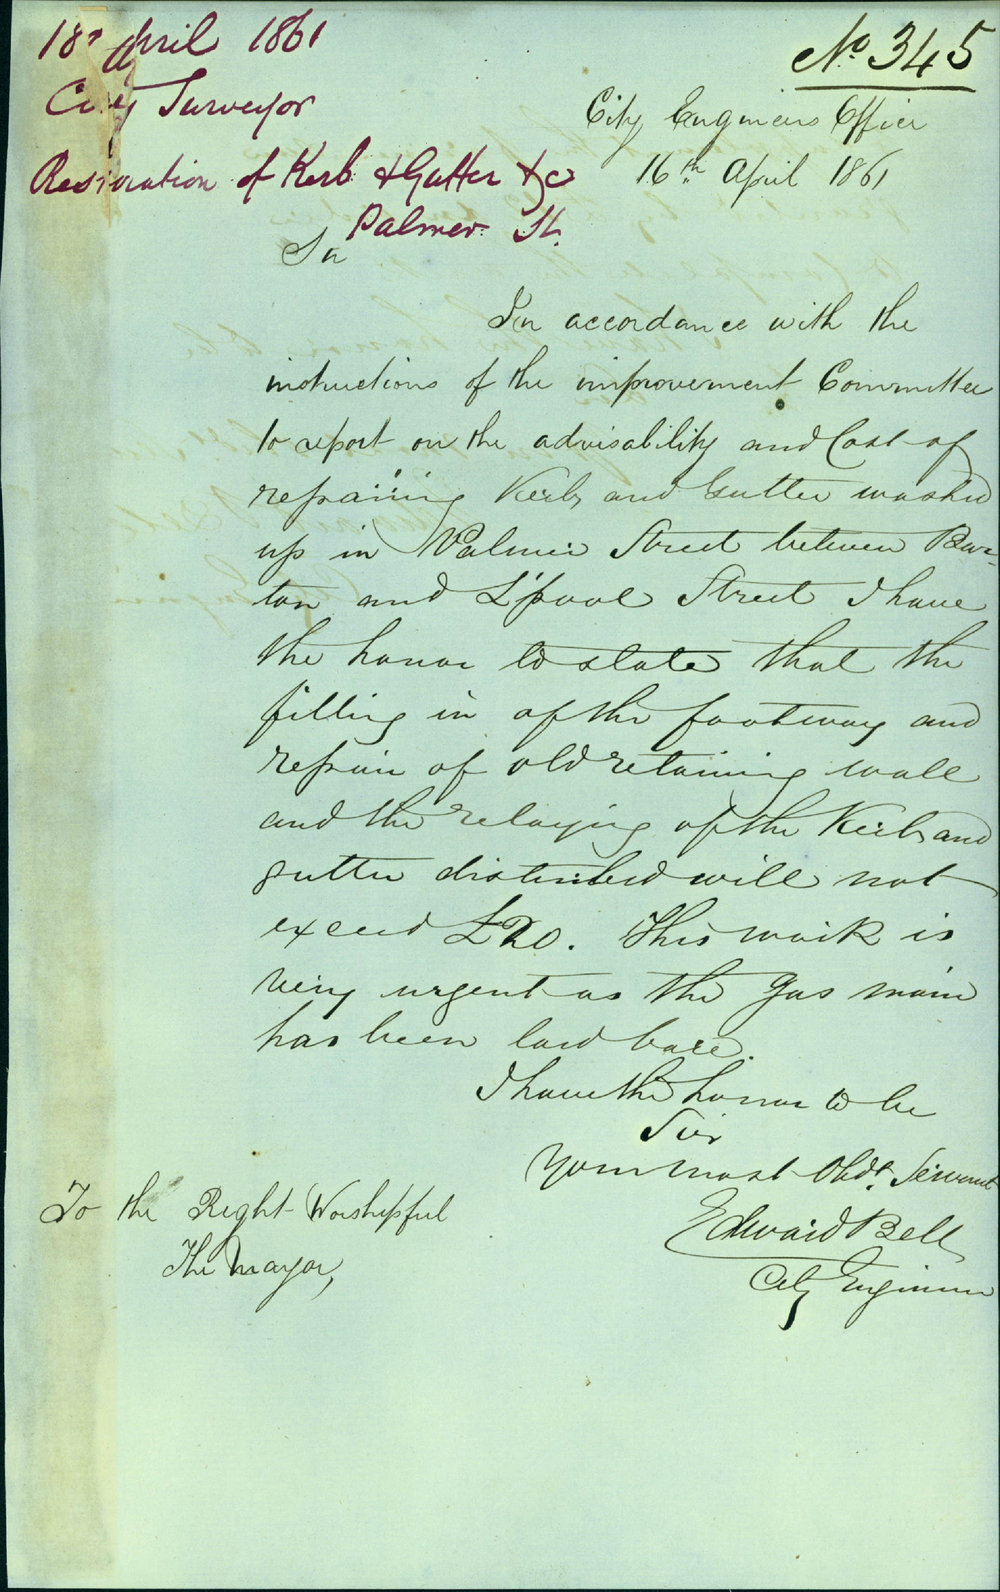 18 April 1861
No 345
City Surveyor
City Engineers Office
Restoration of Kerb & Gutter &c
16th April 1861
Palmer St.
Sir
In accordance with the
instructions of the improvement Committee
to report on the advisability and Cost of
repairing Kerb and Gutter washed
up in Palmer Street between Bur-
ton and L'pool Street I have
the honor to state that the
filling in of the footway and
repair of old retaining wall
and the relaying of the Kerb and
gutter disturbed will not
exceed £20. This work is
very urgent as the Gas main
has been laid bare.
I have the honor to be
Sir
Your most Obdt. Servant
Edward Bell
City Engineer
To the Right Worshipful
The Mayor,